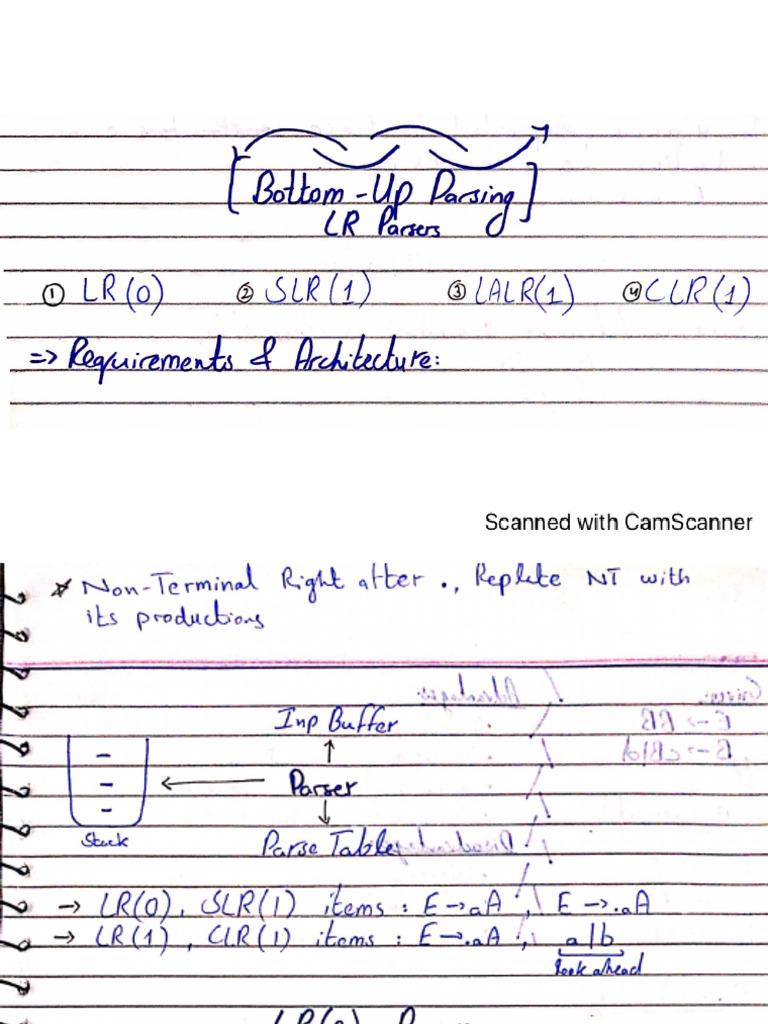 [Bottom-Up Parsing]
LR Parsers
① LR(0) ② SLR(1) ③ LALR(1) ④ CLR(1)
=> Requirements & Architecture:
Scanned with CamScanner
* Non-Terminal Right after ., Replete NT with
its productions
Inp Buffer
Parser
Stack
Parse Table
→ LR(0), SLR(1) items : E→aA , E→.aA
→ LR(1), CLR(1) items : E→.aA , a|b
look ahead